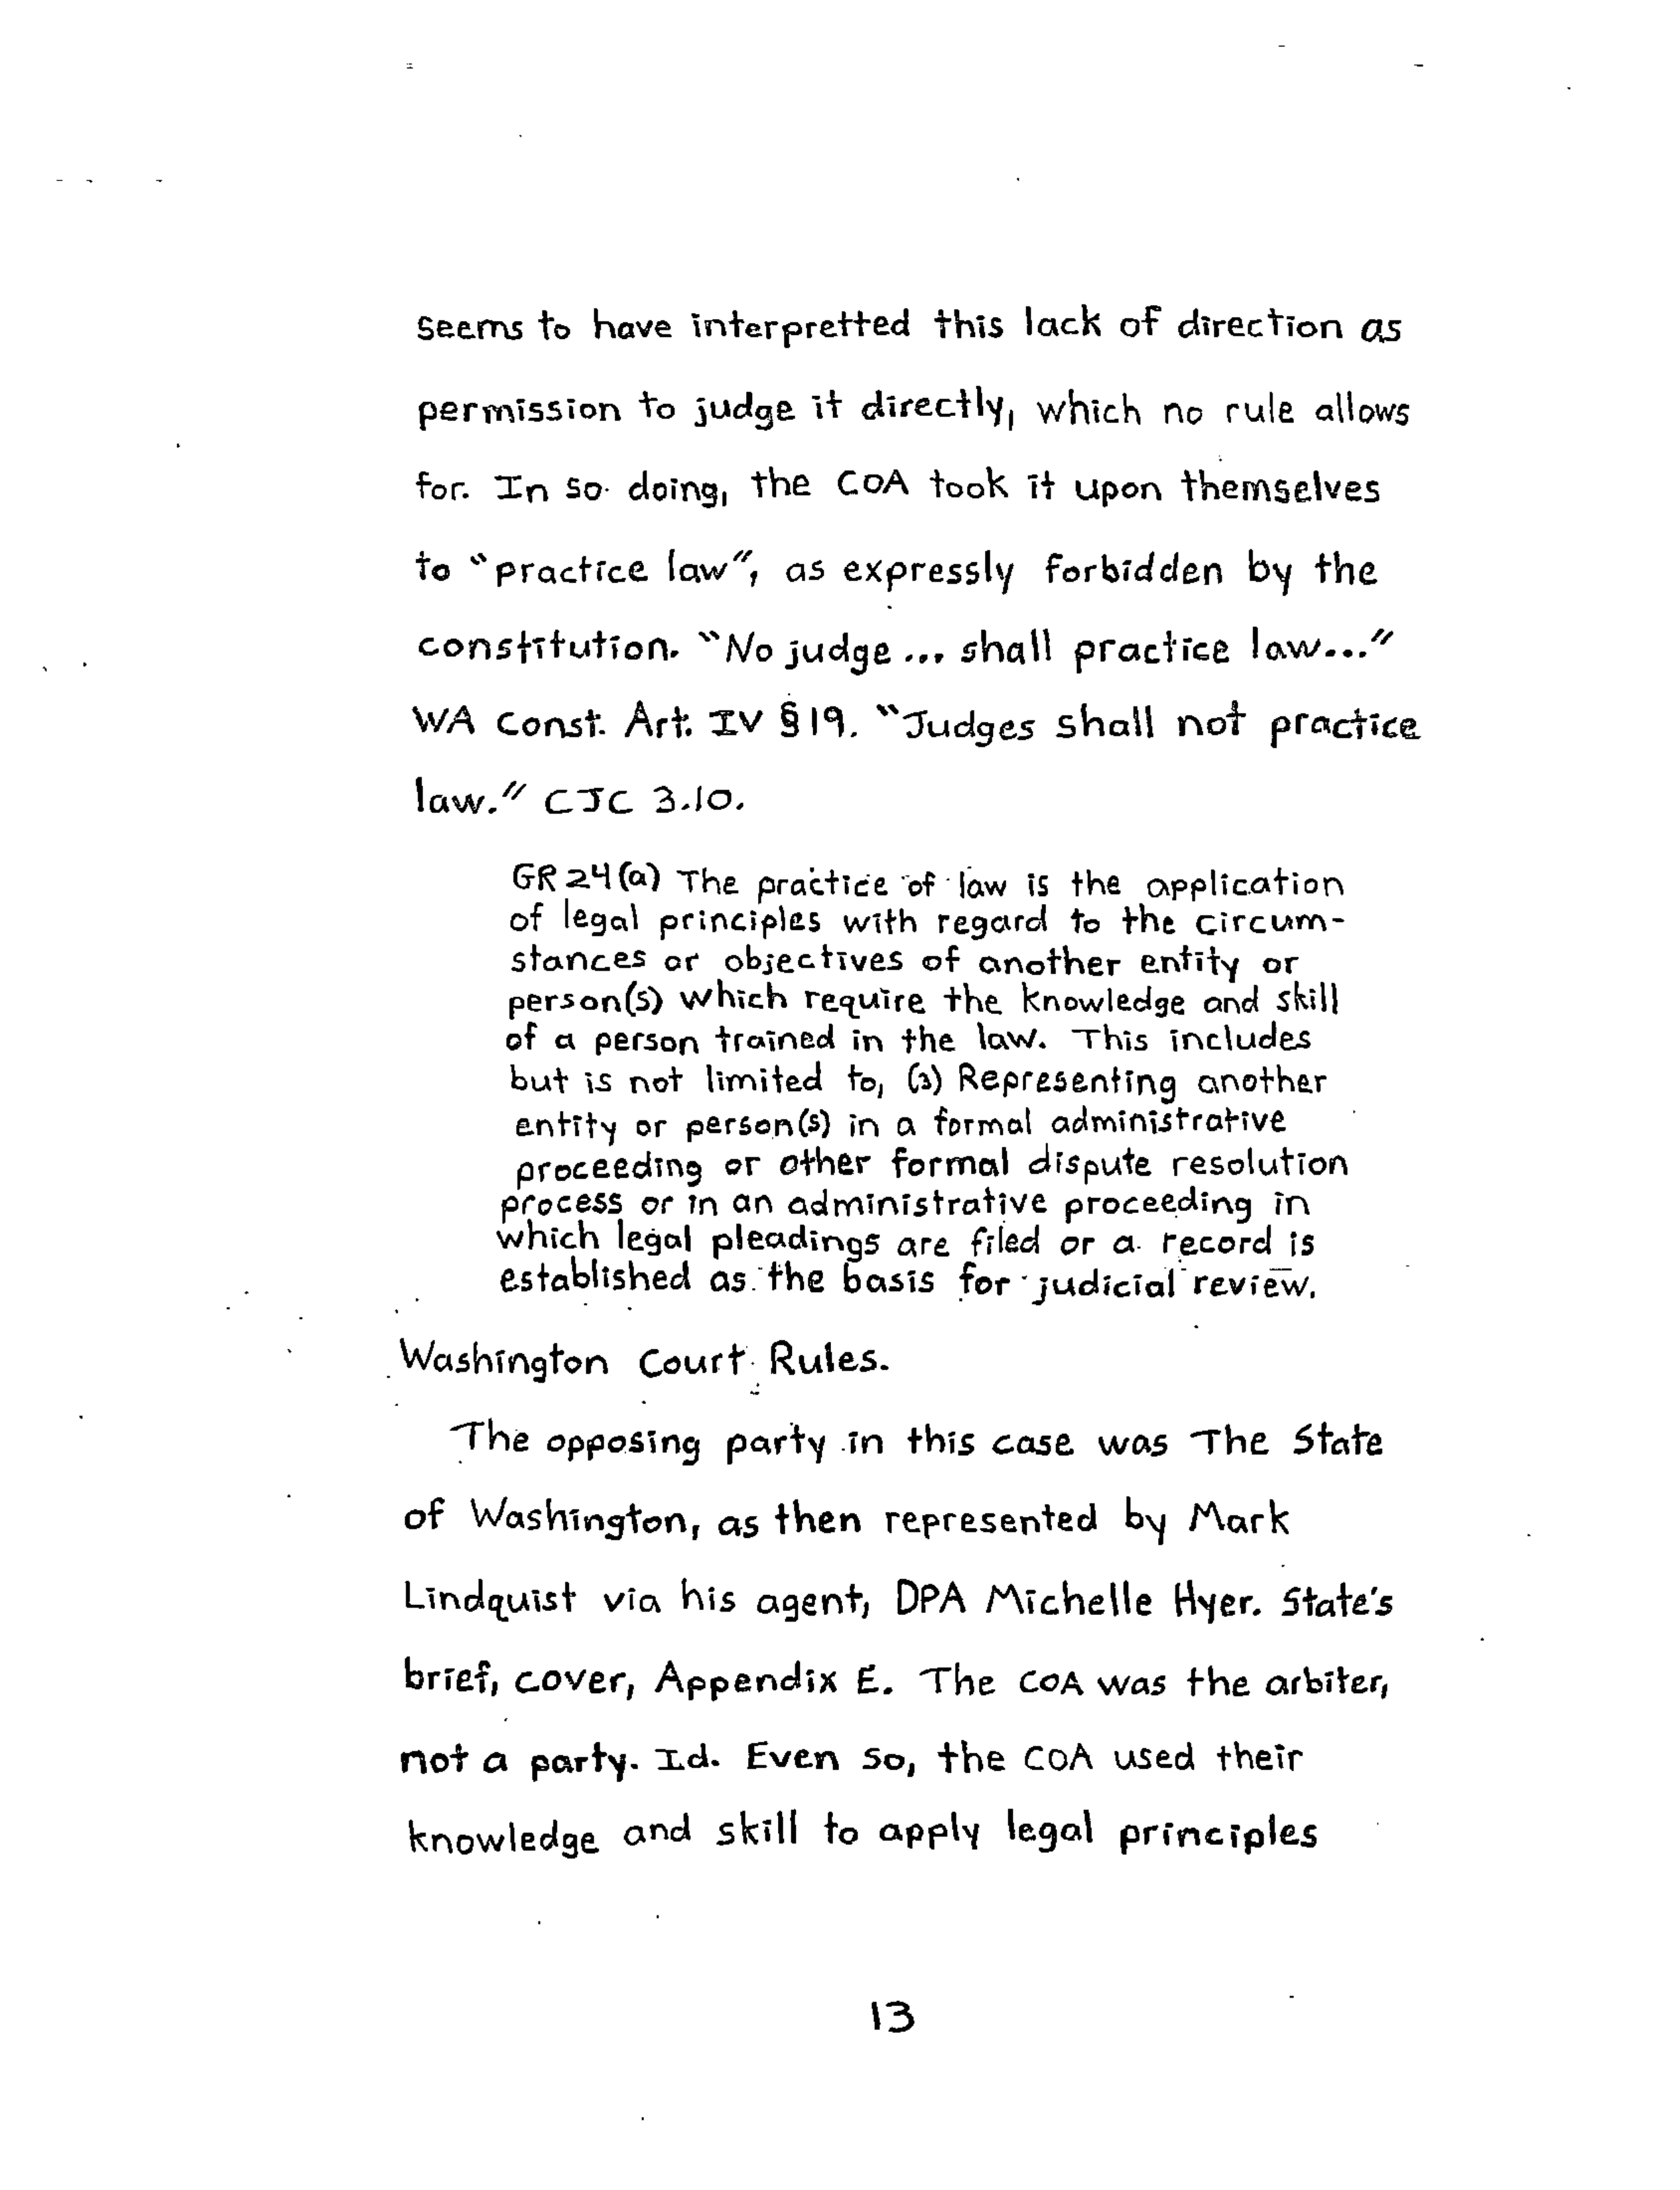 seems to have interpretted this lack of direction as
permission to judge it directly, which no rule allows
for. In so doing, the COA took it upon themselves
to "practice law", as expressly forbidden by the
constitution. "No judge ... shall practice law..."
WA Const. Art. IV § 19. "Judges shall not practice
law." CJC 3.10.
GR 24(a) The practice of law is the application
of legal principles with regard to the circum-
stances or objectives of another entity or
person(s) which require the knowledge and skill
of a person trained in the law. This includes
but is not limited to, (3) Representing another
entity or person(s) in a formal administrative
proceeding or other formal dispute resolution
process or in an administrative proceeding in
which legal pleadings are filed or a record is
established as the basis for judicial review.
Washington Court Rules.
The opposing party in this case was The State
of Washington, as then represented by Mark
Lindquist via his agent, DPA Michelle Hyer. State's
brief, cover, Appendix E. The COA was the arbiter,
not a party. Id. Even so, the COA used their
knowledge and skill to apply legal principles
13